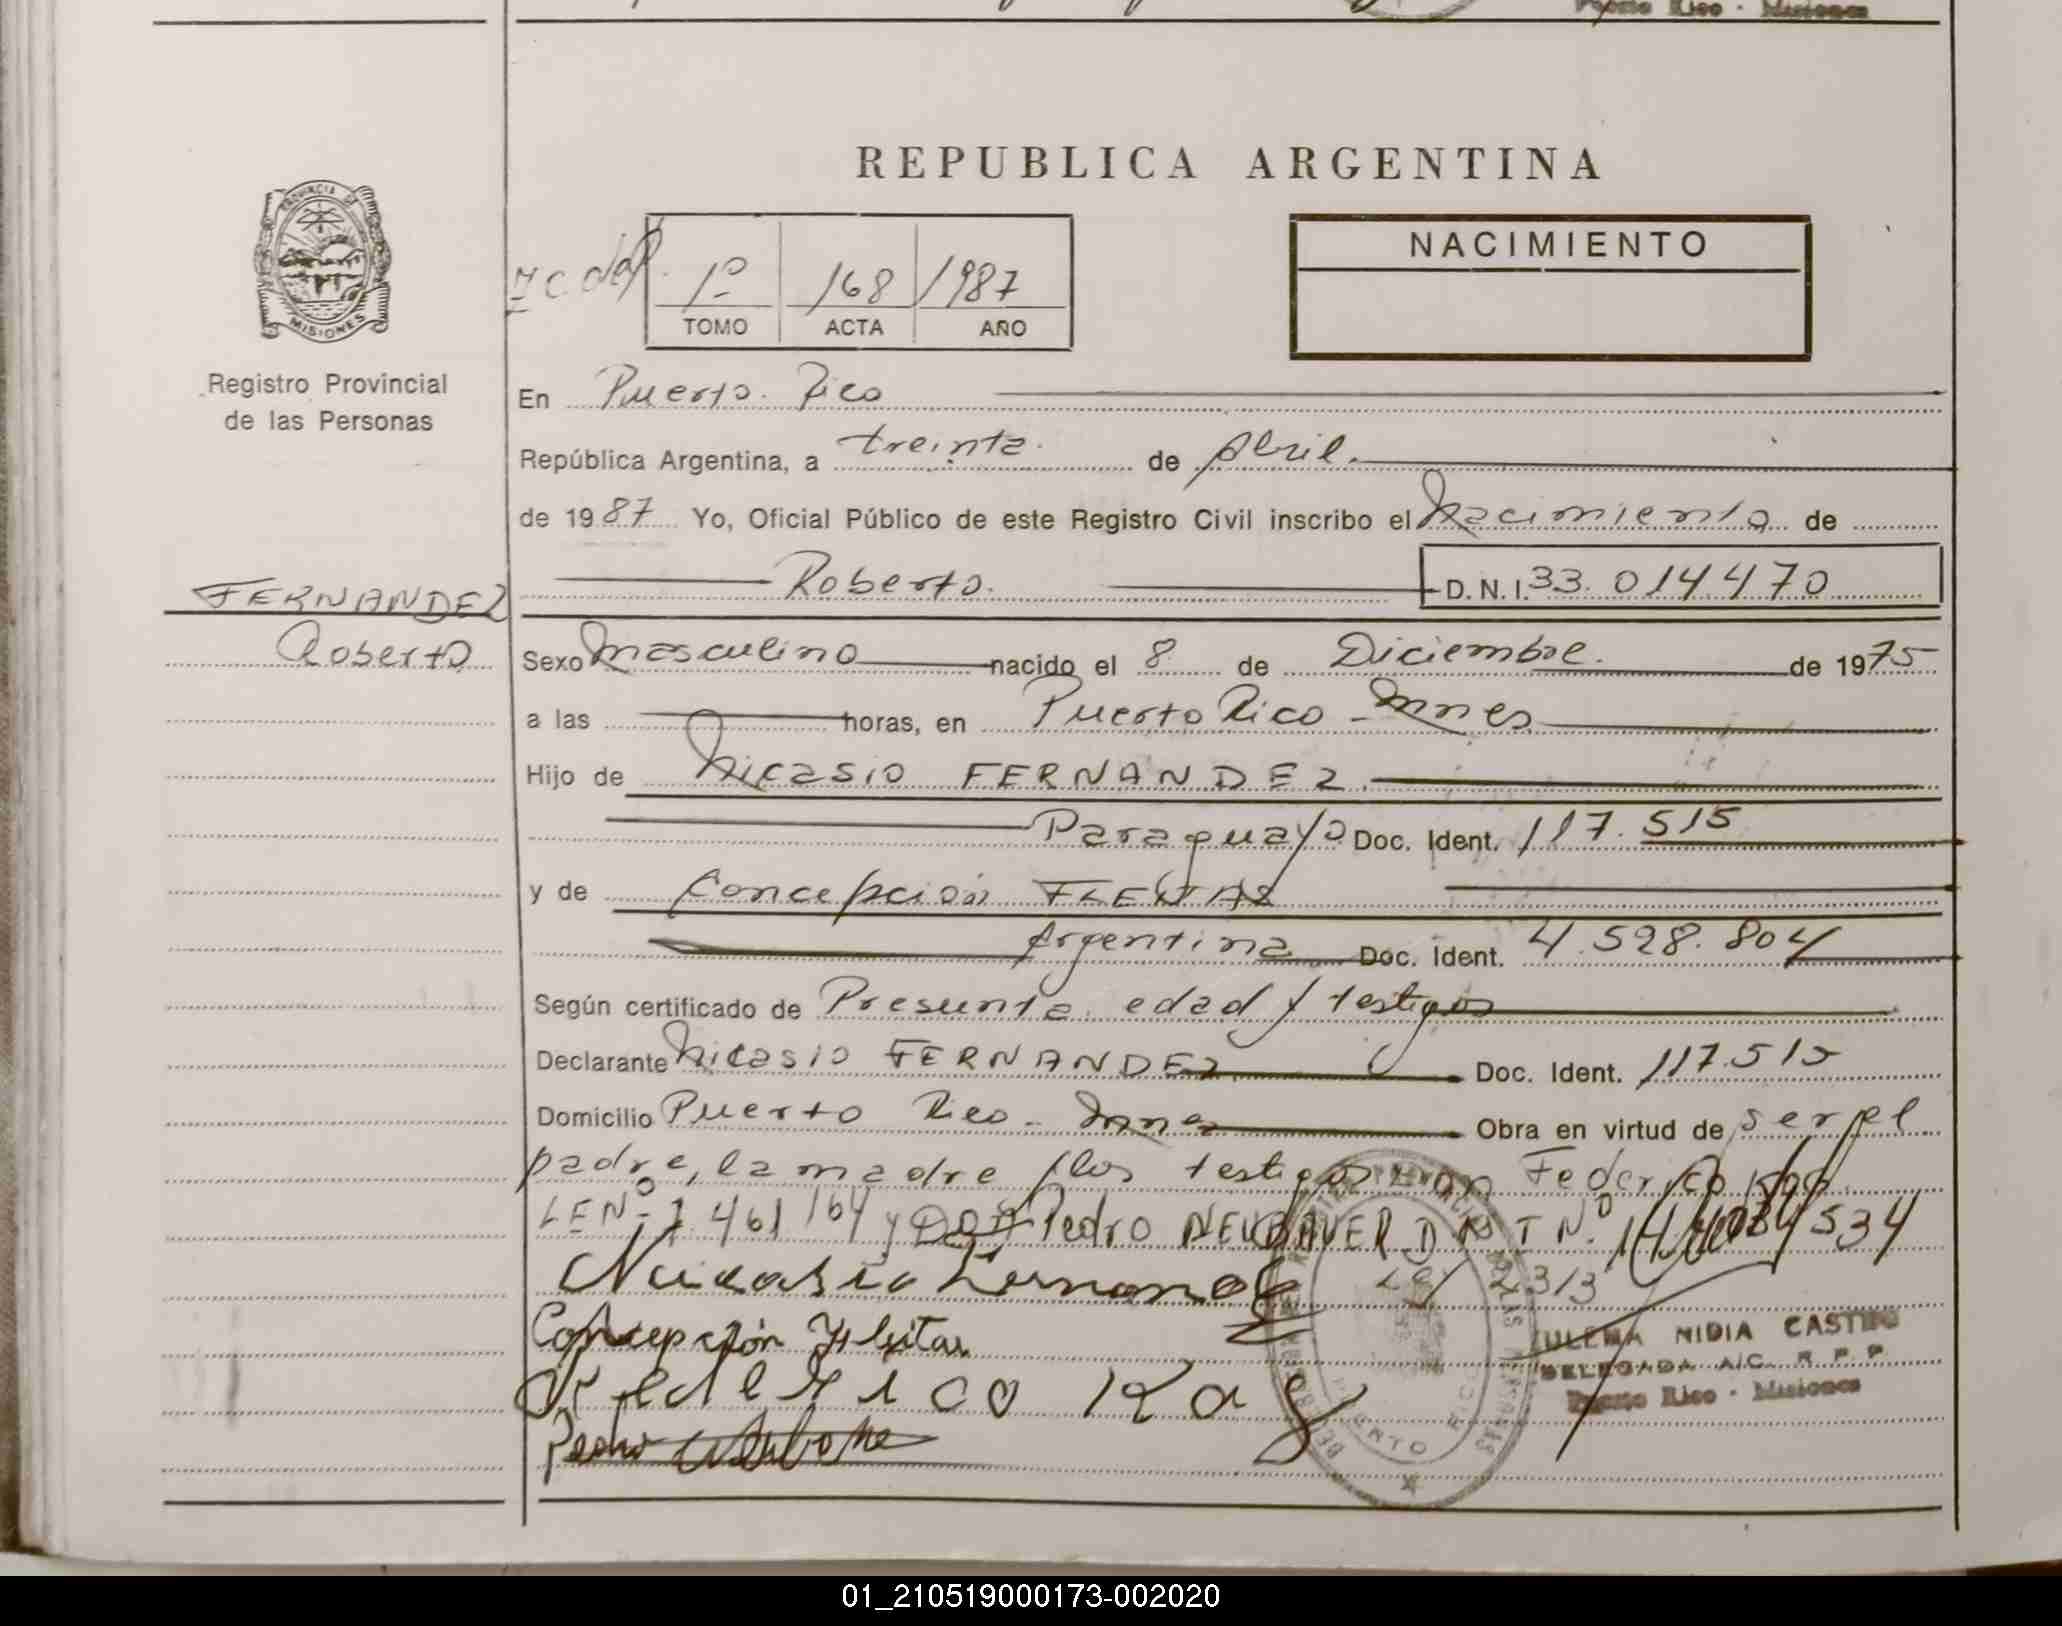 Puerto Rico - Misiones
REPUBLICA ARGENTINA
PROVINCIA DE
MISIONES
Registro Provincial
de las Personas
1º 168 1987
TOMO ACTA AÑO
NACIMIENTO
En Puerto Rico
República Argentina, a treinta de Abril.
de 1987 Yo, Oficial Público de este Registro Civil inscribo el Nacimiento de
FERNANDEZ
Roberto
Roberto. D.N.I. 33.014470
Sexo Masculino nacido el 8 de Diciembre. de 1975
a las horas, en Puerto Rico - Mnes
Hijo de Nicasio FERNANDEZ.
Paraguayo Doc. Ident. 117.515
y de Concepción FLEITAS
Argentina Doc. Ident. 4.528.804
Según certificado de Presunta edad y testigos
Declarante Nicasio FERNANDEZ Doc. Ident. 117.515
Domicilio Puerto Rico - Mnes Obra en virtud de ser el
padre, la madre y los testigos Don Federico
LE Nº 7.461.164 y Don Pedro NEUBAUER D N I Nº
Nicasio Fernandez
Ley 21313
Concepción Fleitas
ZULEMA NIDIA CASTRO
DELEGADA A/C. R. P. P.
Puerto Rico - Misiones
Federico
Pedro
PUERTO RICO
01_210519000173-002020